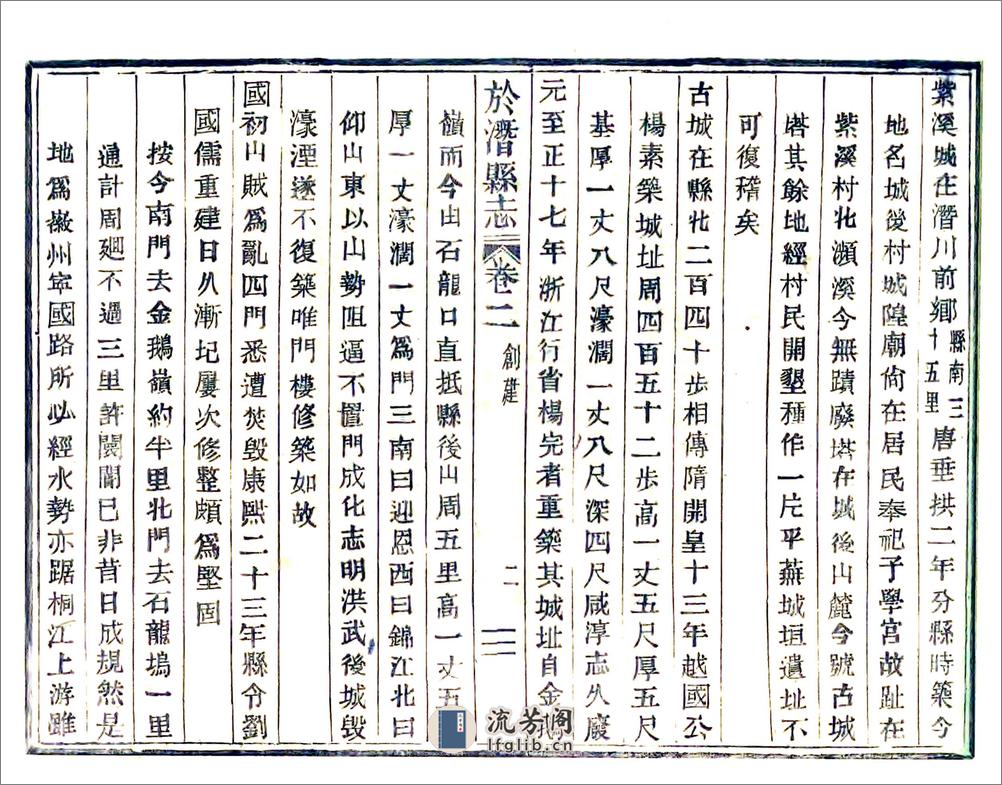 紫溪城在潛川前鄉縣南三十五里唐垂拱二年分縣時築今
地名城後村城隍廟尙在居民奉祀子學宮故趾在
紫溪村北瀕溪今無蹟廢塔在城後山麓今號古城
塔其餘地經村民開墾種作一片平蕪城垣遺址不
可復稽矣
古城在縣北二百四十步相傳隋開皇十三年越國公
楊素築城址周四百五十二步高一丈五尺厚五尺
基厚一丈八尺濠濶一丈八尺深四尺咸淳志久廢
元至正十七年浙江行省楊完者重築其城址自金鵝
於潛縣志 卷二 創建 二
嶺而今由石龍口直抵縣後山周五里高一丈五
厚一丈濠濶一丈爲門三南曰迎恩西曰錦江北曰
仰山東以山勢阻逼不置門成化志明洪武後城毁
濠湮遂不復築唯門樓修築如故
國初山賊爲亂四門悉遭焚毁康熙二十三年縣令劉
國儒重建日久漸圮屢次修整頗爲堅固
按今南門去金鵝嶺約半里北門去石龍塢一里
通計周廻不過三里許闤闠已非昔日成規然是
地爲徽州寧國路所必經水勢亦踞桐江上游雖
流芳阁
lfglib.cn